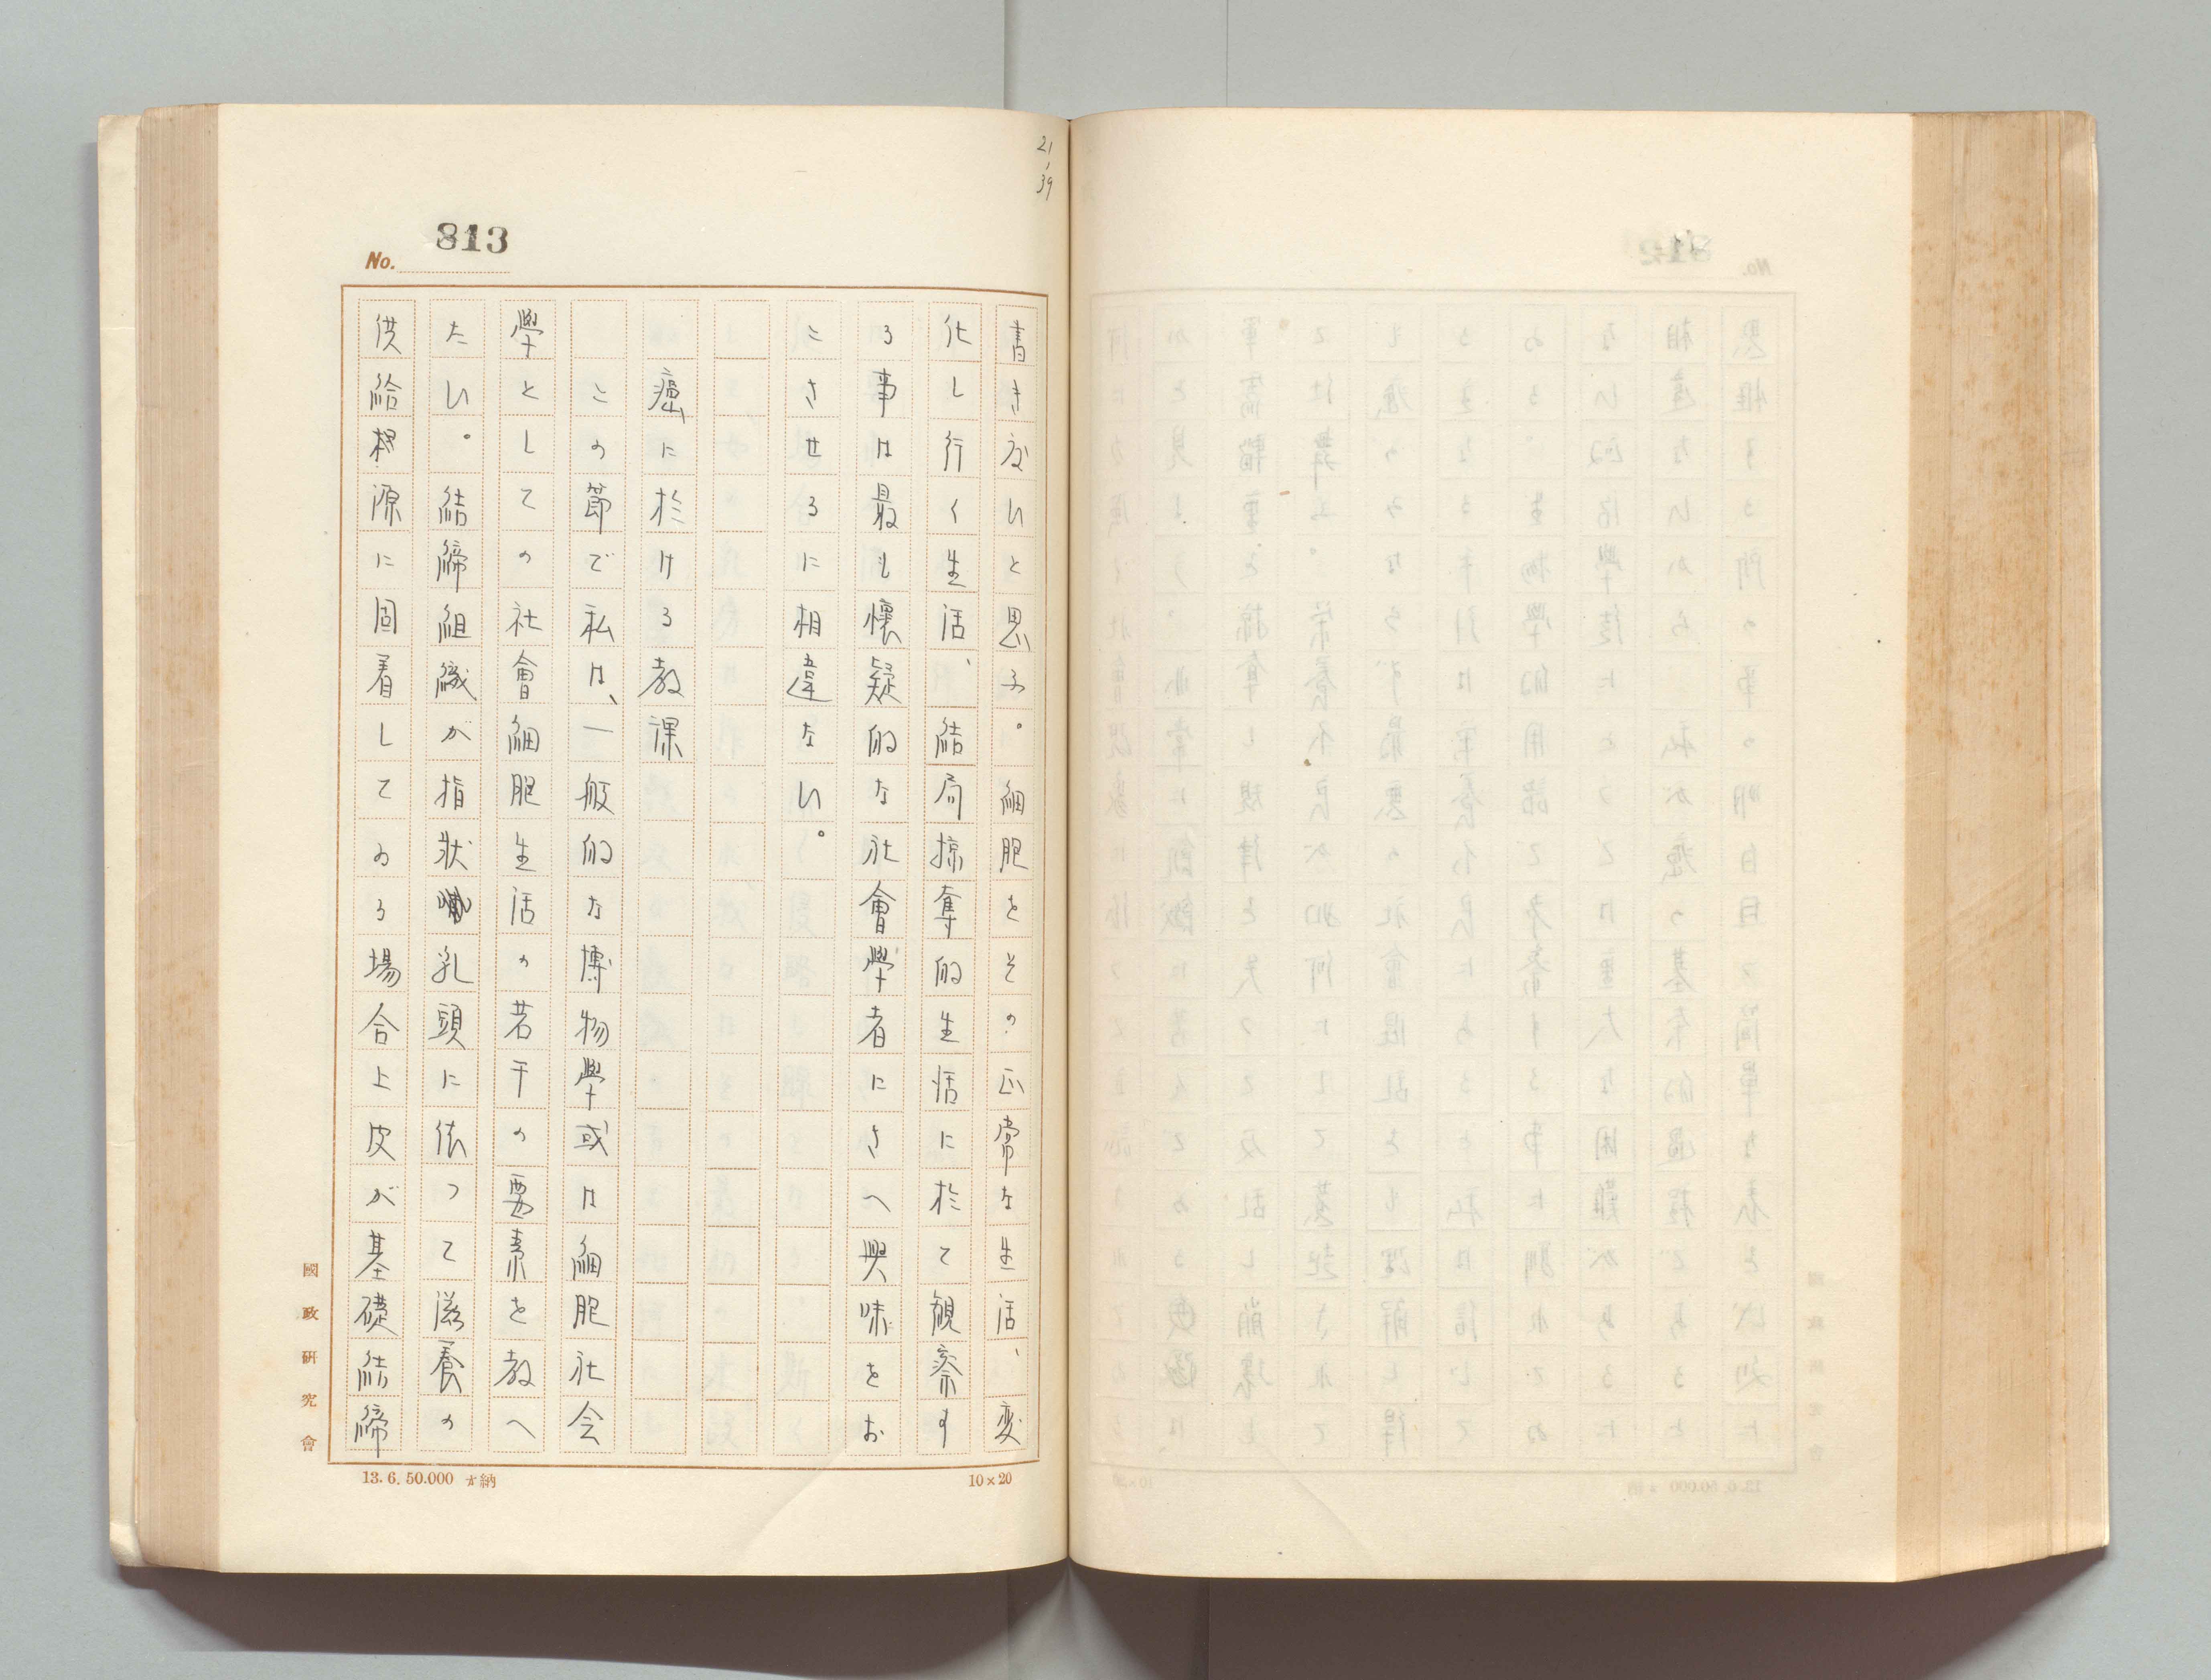 21
39
No. 813
書き度いと思ふ。細胞をその正常な生活、変
化し行く生活、結局掠奪的生活に於て観察す
る事は最も懐疑的な社會學者にさへ興味をお
こさせるに相違ない。
癌に於ける教課
この節で私は、一般的な博物學或は細胞社会
學としての社會細胞生活の若干の要素を教へ
たい。結締組織が指状乳頭に依つて滋養の
供給根源に固着してゐる場合上皮が基礎結締
國政研究會
13.6.50.000 納
10×20